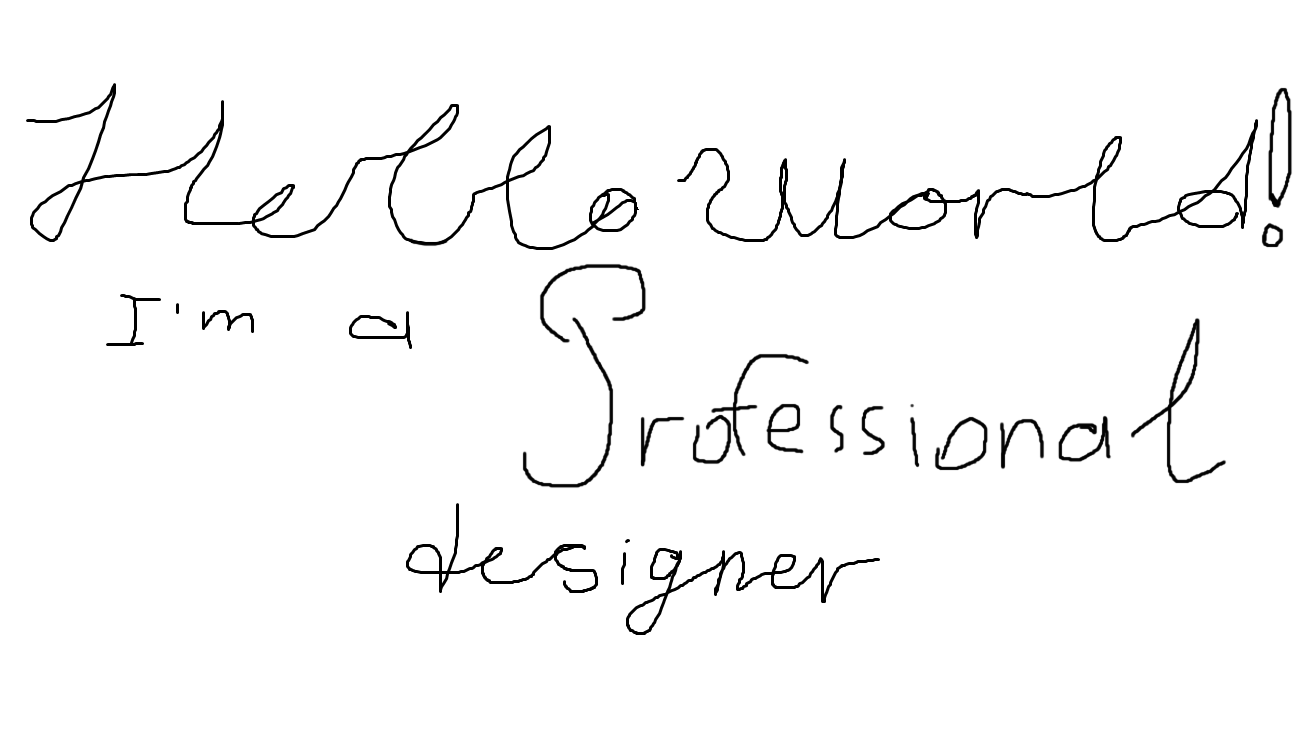 Hello World!
I'm a Professional
designer